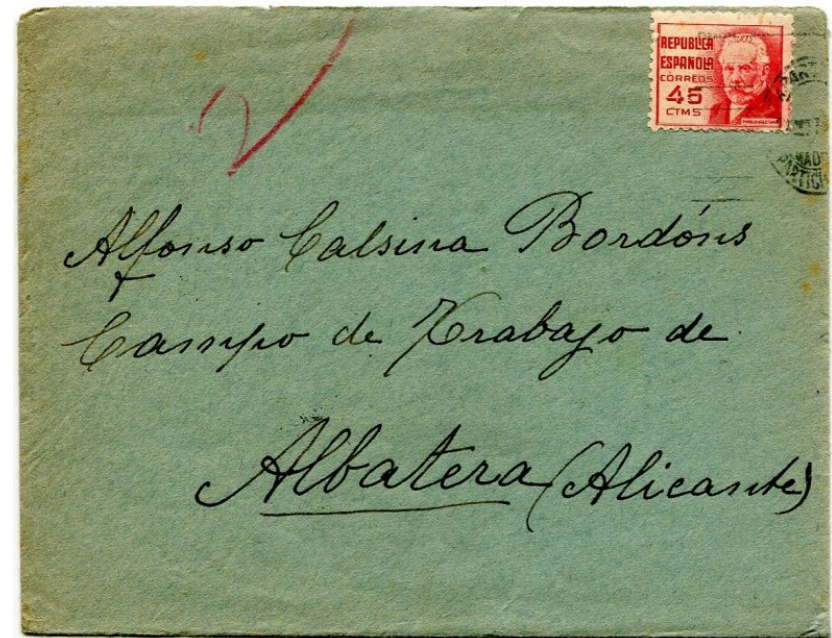 REPUBLICA
ESPAÑOLA
CORREOS
45
CTMS
2
Alfonso Calsina Bordóns
Campo de Trabajo de
Albatera (Alicante)